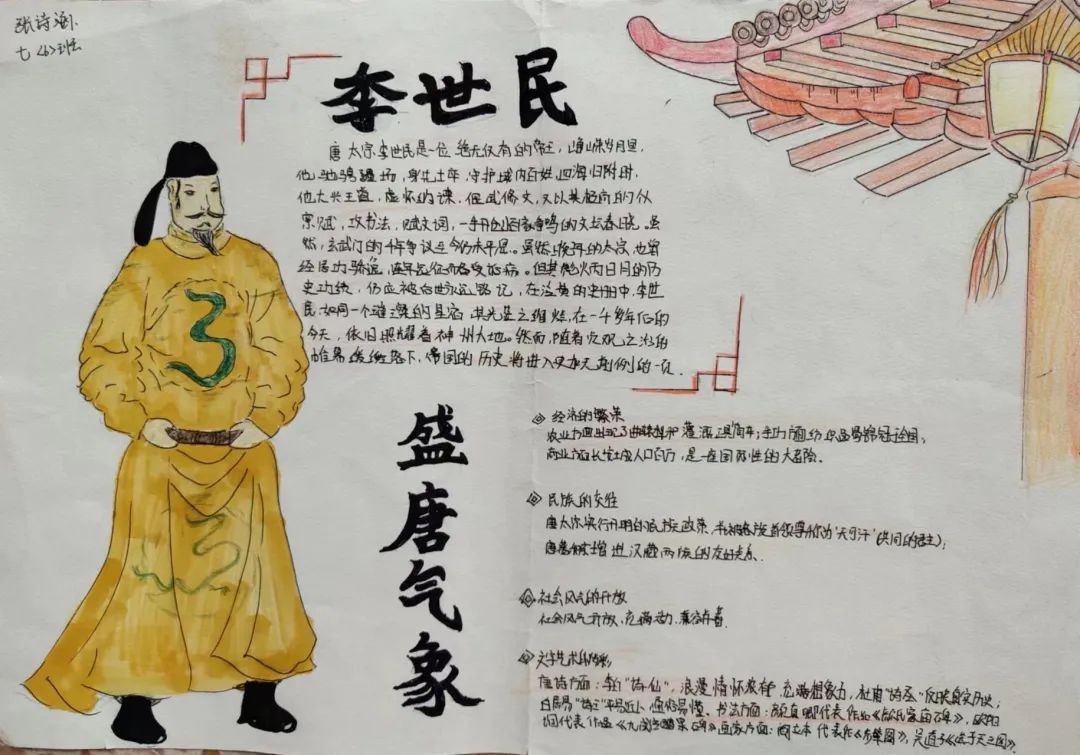 张诗涵
七〈6〉班
李世民
唐太宗李世民是一位绝无仅有的帝王,峥嵘岁月里,
他驰骋疆场,身先士卒,守护城内百姓,四海归附时,
他大兴王道,虚怀纳谏,偃武修文,又以其超前的
赋,攻书法,赋文词,一手开创百家争鸣的文坛春晓。虽
然,玄武门的千年争议至今仍未平息。虽然晚年的太宗,也曾
经居功骄逸,连年远征而备受诟病。但其炮火丙日月的历
史功绩,仍应被后世永远铭记,在泛黄的史册中,李世
民如同一个璀璨的星宿,其光甚之绚烂,在一千多年后的
今天,依旧照耀着神州大地。然而,随着贞观之治的
帷幕缓缓落下,帝国的历史将进入更加无前例的一页.
盛唐气象
经济的繁荣
农业方面出现了曲辕犁和灌溉工具筒车;手工方面纺织品蜀锦冠于全国;
商业方面长安城人口百万,是一座国际性的大都会.
民族的交往
唐太宗实行开明的民族政策,书被各族首领尊称为"天可汗"(共同的君主);
唐蕃会盟增进汉藏两族的友好关系.
社会风气的开放
社会风气开放,充满活力,兼容并蓄.
文学艺术的精彩
唐诗方面:李白"诗仙",浪漫情怀浓郁,充满想象力,杜甫"诗圣"反映真实历史;
白居易"诗王"平易近人,通俗易懂。书法方面:颜真卿代表作品《颜氏家庙碑》,欧阳
询代表作品《九成宫醴泉铭》画家方面:阎立本代表作《步辇图》,吴道子《送子天王图》.